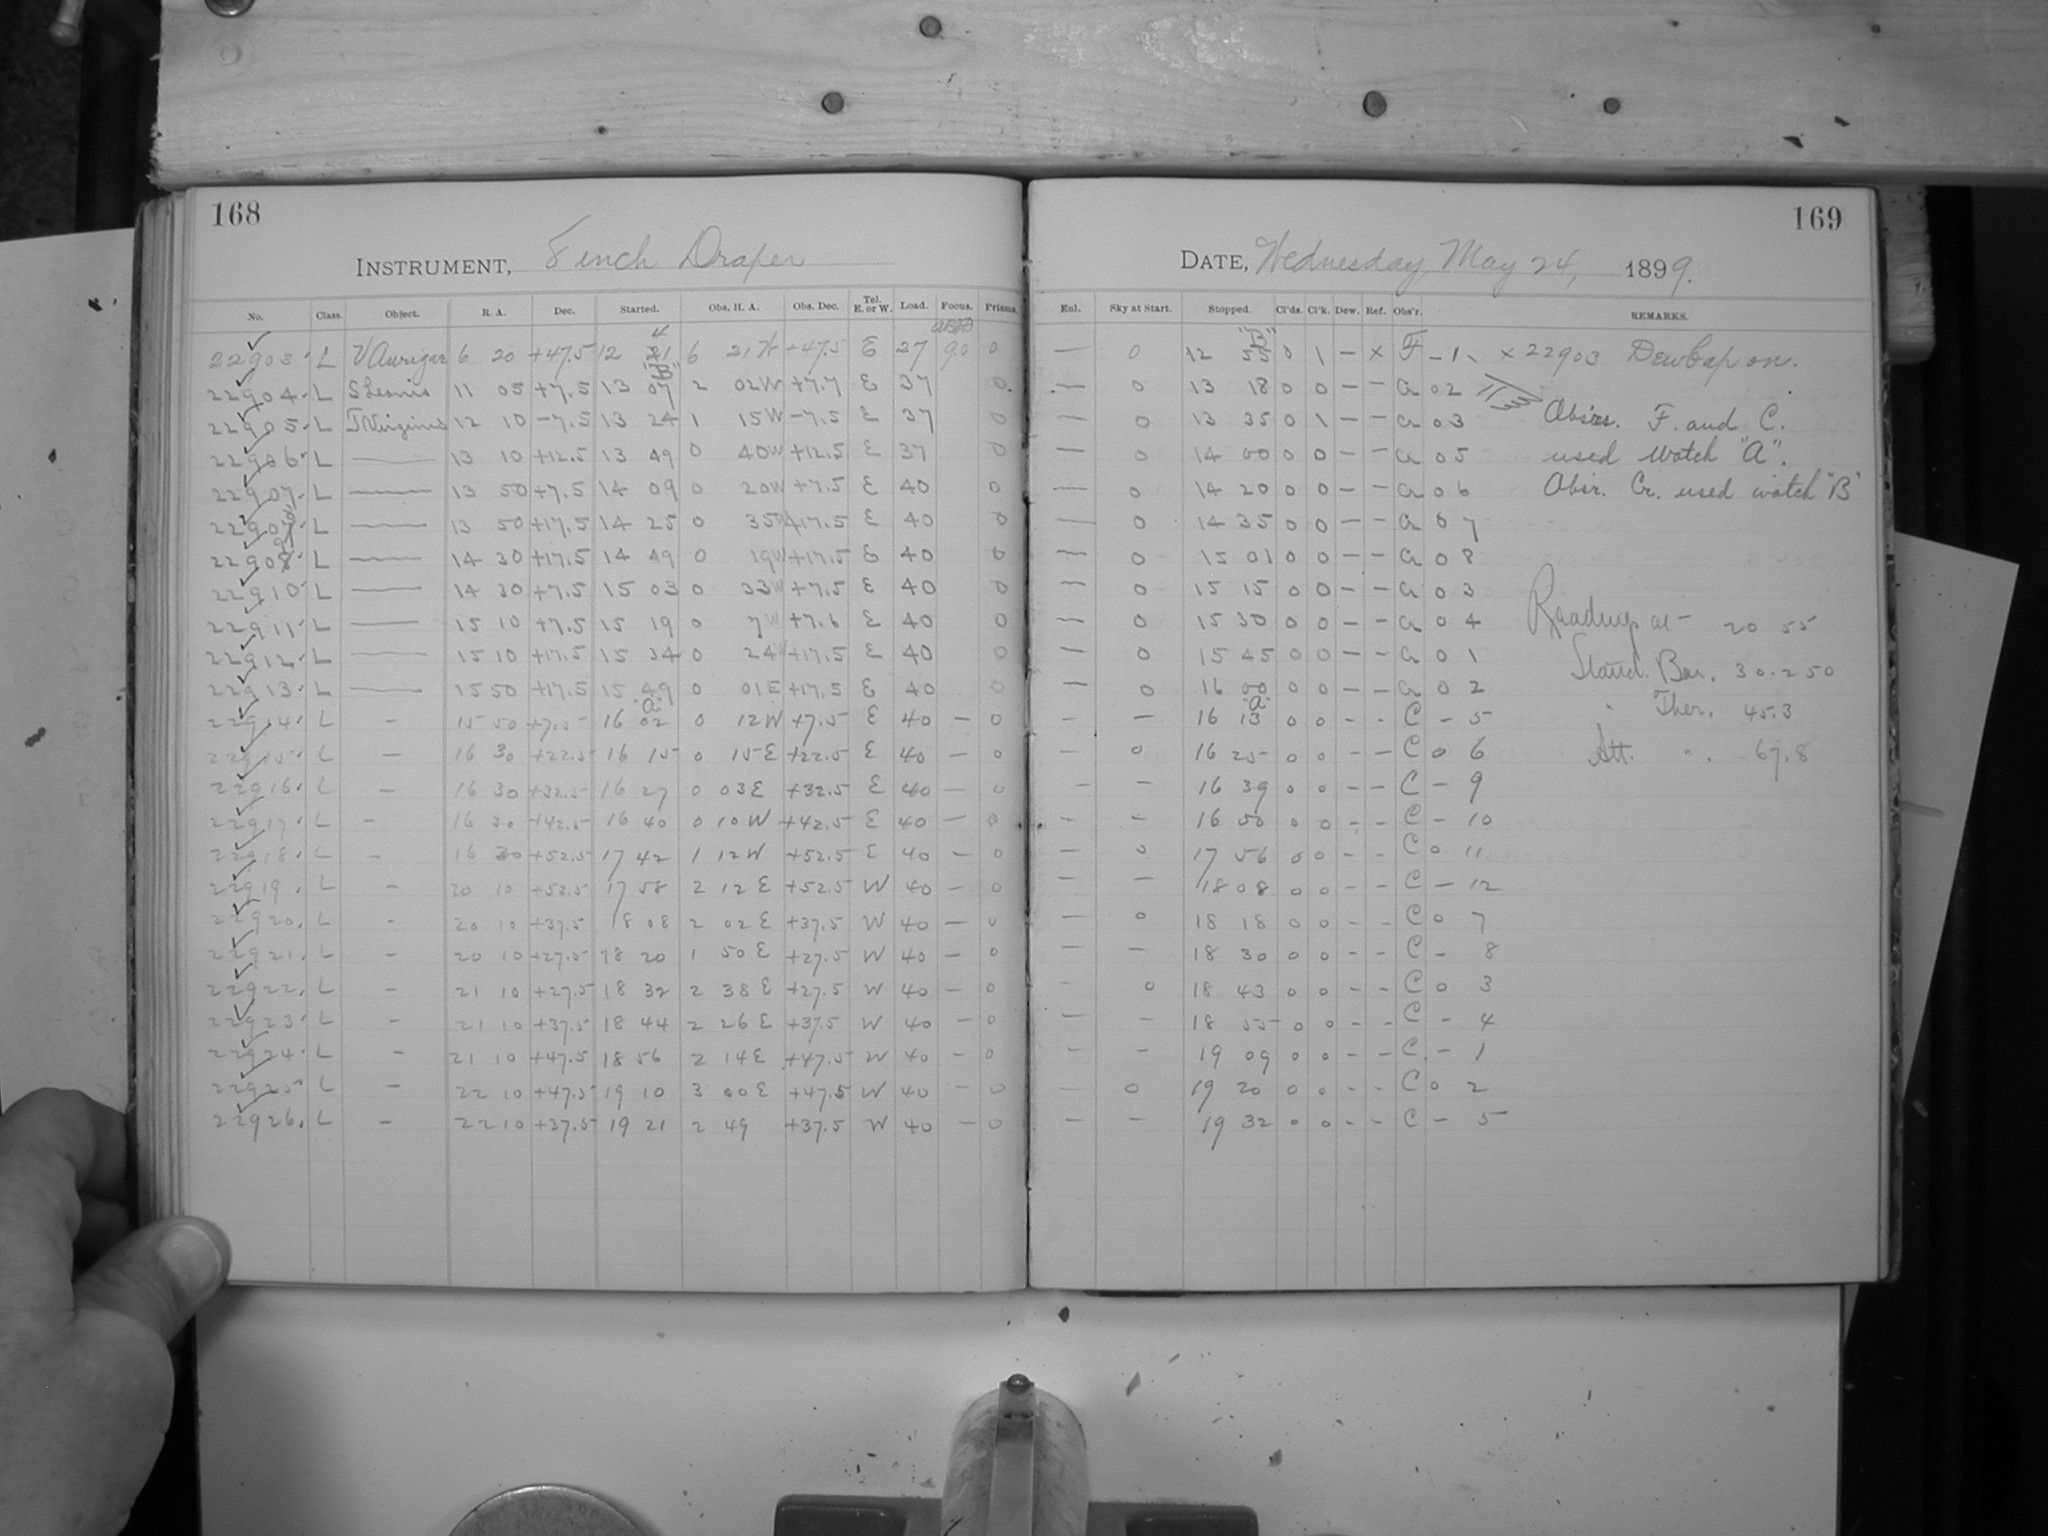 168
INSTRUMENT, 8 inch Draper
No. Class. Object. R. A. Dec. Started. Obs. H. A. Obs. Dec. Tel. E. or W. Load. Focus. Prisms.
22903 L V Aurigae 6 20 +47.5 12 6 21 W +47.5 E 37 9.0 0
22904. L S Leonis 11 05 +7.5 13 07 2 02W +7.7 E 37 0
22905. L T Virginis 12 10 -7.5 13 24 1 15W -7.5 E 37 0
22906. L — 13 10 +12.5 13 49 0 40W +12.5 E 37 0
22907. L — 13 50 +7.5 14 09 0 20W +7.5 E 40 0
L — 13 50 +17.5 14 25 0 35W +17.5 E 40 0
L — 14 30 +17.5 14 49 0 19W +17.5 E 40 0
22910. L — 14 30 +7.5 15 03 0 33W +7.5 E 40 0
22911. L — 15 10 +7.5 15 19 0 7W +7.6 E 40 0
22912. L — 15 10 +17.5 15 34 0 24W +17.5 E 40 0
22913. L — 15 50 +17.5 15 49 0 01E +17.5 E 40 0
22914. L - 15 50 +7.5 "A" 16 02 0 12W +7.5 E 40 - 0
22915. L - 16 30 +22.5 16 15 0 15E +22.5 E 40 - 0
22916. L - 16 30 +32.5 16 27 0 03E +32.5 E 40 - 0
22917. L - 16 30 +42.5 16 40 0 10W +42.5 E 40 - 0
22918. L - 16 30 +52.5 17 42 1 12W +52.5 E 40 - 0
22919. L - 20 10 +52.5 17 58 2 12E +52.5 W 40 - 0
22920. L - 20 10 +37.5 18 08 2 02E +37.5 W 40 - 0
22921. L - 20 10 +27.5 18 20 1 50E +27.5 W 40 - 0
22922. L - 21 10 +27.5 18 32 2 38E +27.5 W 40 - 0
22923. L - 21 10 +37.5 18 44 2 26E +37.5 W 40 - 0
22924. L - 21 10 +47.5 18 56 2 14E +47.5 W 40 - 0
22925. L - 22 10 +47.5 19 10 3 00E +47.5 W 40 - 0
22926. L - 22 10 +37.5 19 21 2 49 +37.5 W 40 - 0
169
DATE, Wednesday, May 24, 1899.
Enl. Sky at Start. Stopped. Cl'ds. Cl'k. Dew. Ref. Obs'r. REMARKS.
— 0 12 55 0 1 - x F - 1. x 22903 Dew Cap on.
— 0 13 18 0 0 - - Cr 0 2
— 0 13 35 0 1 - - Cr 0 3 Obsrs. F. and C.
— 0 14 00 0 0 - - Cr 0 5 used Watch "A".
— 0 14 20 0 0 - - Cr 0 6 Obsr. Cr. used watch "B"
— 0 14 35 0 0 - - Cr 0 7
— 0 15 01 0 0 - - Cr 0 8
— 0 15 15 0 0 - - Cr 0 3
— 0 15 30 0 0 - - Cr 0 4 Readings at 20 55
— 0 15 45 0 0 - - Cr 0 1 Stand. Bar. 30.250
— 0 16 00 0 0 - - Cr 0 2 " Ther. 45.3
- - "A" 16 13 0 0 - - C - 5
- 0 16 25 0 0 - - C 0 6 Att. " 67.8
- - 16 39 0 0 - - C - 9
- - 16 50 0 0 - - C - 10
- 0 17 56 0 0 - - C 0 11
- - 18 08 0 0 - - C - 12
- 0 18 18 0 0 - - C 0 7
- - 18 30 0 0 - - C - 8
- 0 18 43 0 0 - - C 0 3
- - 18 55 0 0 - - C - 4
- - 19 09 0 0 - - C - 1
- 0 19 20 0 0 - - C 0 2
- - 19 32 0 0 - - C - 5